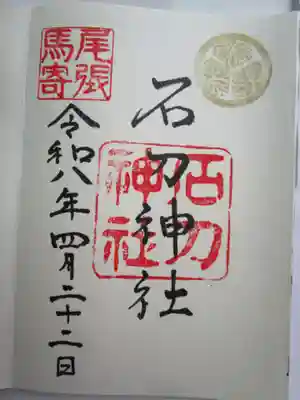 石刀神社
石刀
神社
尾張
馬寄
令和八年四月二十二日